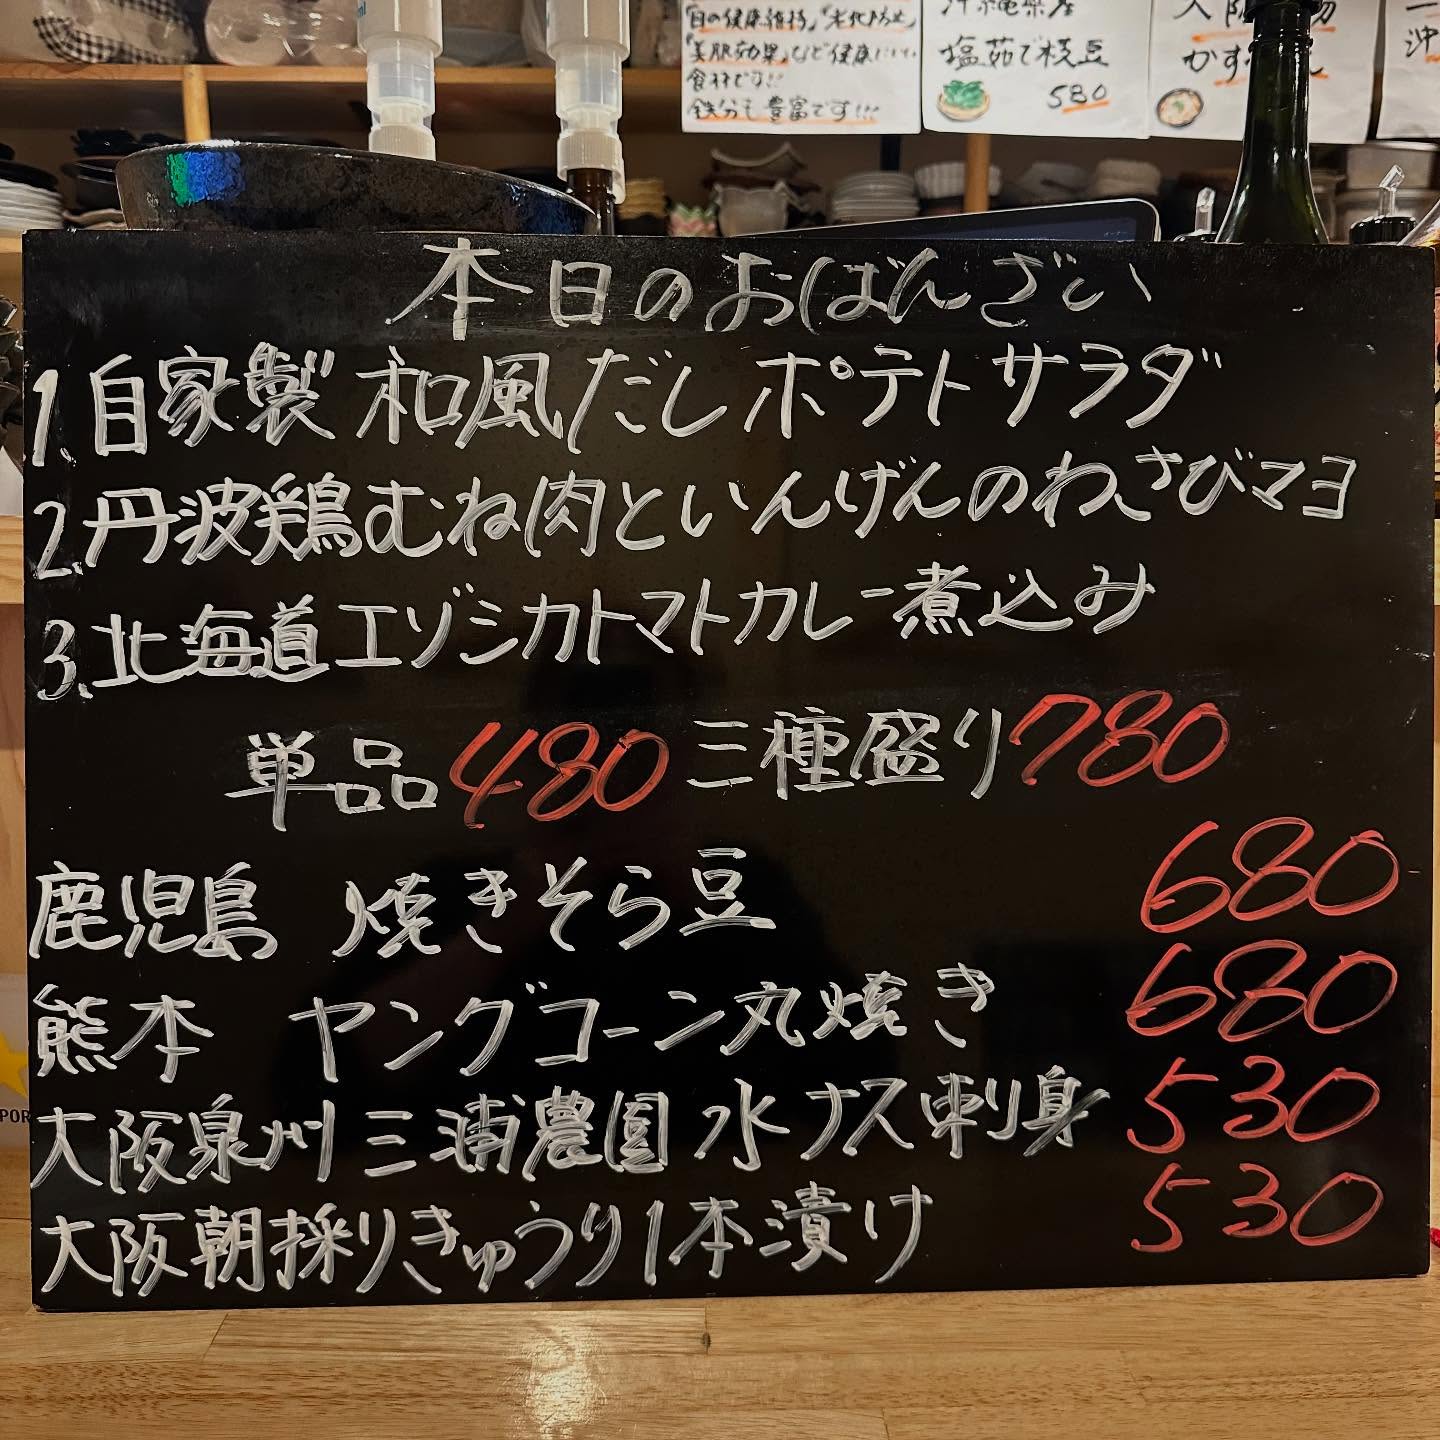 「目の健康維持」「老化防止」
「美肌効果」など健康にいい
食材です!!
鉄分も豊富です!!!
沖縄県産
塩茹で枝豆
580
大阪
かす
沖
本日のおばんざい
1.自家製 和風だしポテトサラダ
2.丹波鶏むね肉といんげんのわさびマヨ
3.北海道エゾシカトマトカレー煮込み
単品480 三種盛り780
鹿児島 焼きそら豆 680
熊本 ヤングコーン丸焼き 680
大阪泉州 三浦農園 水ナス刺身 530
大阪朝採りきゅうり1本漬け 530
POR